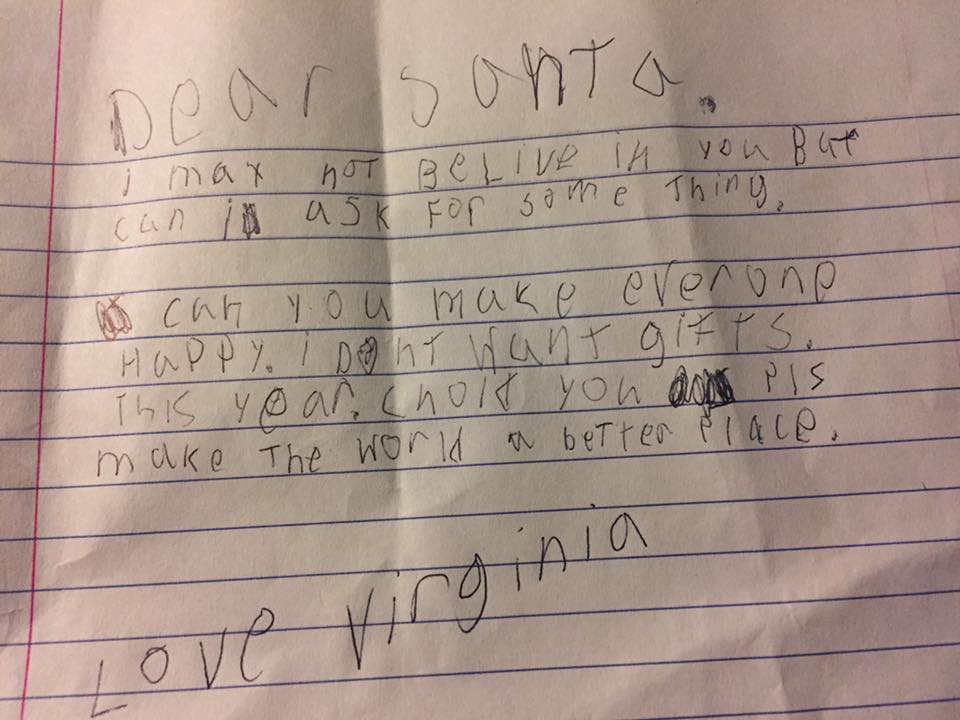 Dear Santa.
i may not BeLive in you But
can i ask For some Thing.
can you make everone
Happy. i Dont want gifts.
This year. chold you pls
make The world a better place.
Love Virginia